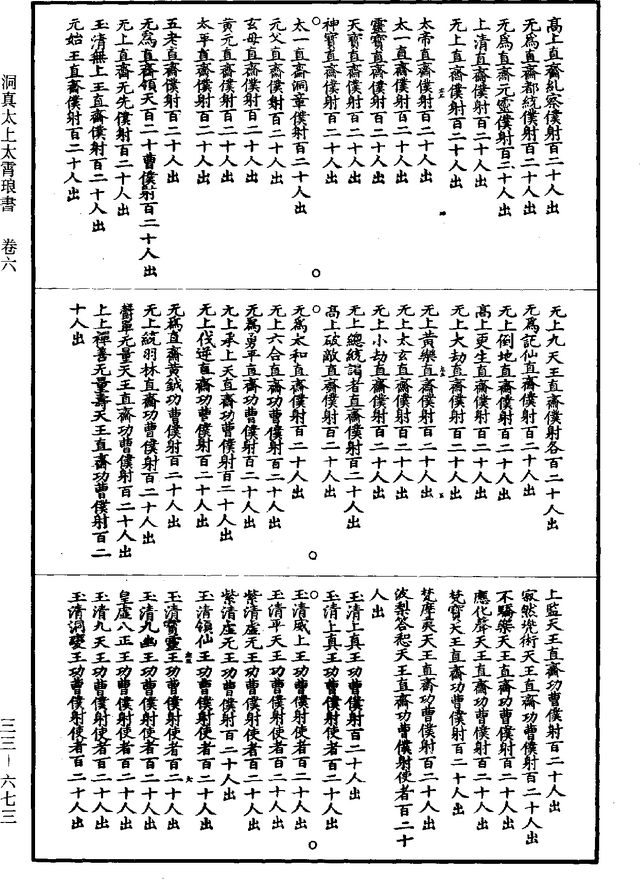 高上直齋糺察僕射百二十人出
无爲直齋都統僕射百二十人出
无爲直齋元靈僕射百二十人出
上清直齋僕射百二十人出
无上直齋僕射百二十人出
太帝直齋僕射百二十人出
太一直齋僕射百二十人出
靈寶直齋僕射百二十人出
天寶直齋僕射百二十人出
神寶直齋僕射百二十人出
太一直齋洞章僕射百二十人出
元父直齋僕射百二十人出
玄母直齋僕射百二十人出
黃元直齋僕射百二十人出
太平直齋僕射百二十人出
五老直齋僕射百二十人出
无爲直齋領天百二十曹僕射百二十人出
无上直齋无先僕射百二十人出
玉清無上王直齋僕射百二十人出
元始王直齋僕射百二十人出
无上九天王直齋僕射各百二十人出
无爲記仙直齋僕射百二十人出
无上倒地直齋僕射百二十人出
高上更生直齋僕射百二十人出
无上大劫直齋僕射百二十人出
无上黃樂直齋僕射百二十人出
无上太玄直齋僕射百二十人出
无上小劫直齋僕射百二十人出
无上總統謁者直齋僕射百二十人出
高上破敵直齋僕射百二十人出
无爲太和直齋僕射百二十人出
无上六合直齋功曹僕射百二十人出
无爲勇平直齋功曹僕射百二十人出
九上承上天直齋功曹僕射百二十人出
无上伐逆直齋功曹僕射百二十人出
无爲直齋黃鉞功曹僕射百二十人出
无上統羽林直齋功曹僕射百二十人出
欝單无量天王直齋功曹僕射百二十人出
上上禪善无量壽天王直齋功曹僕射百二
十人出
上監天王直齋功曹僕射百二十人出
寂然兠術天王直齋功曹僕射百二十人出
不驕樂天王直齋功曹僕射百二十人出
應化聲天王直齋功曹僕射百二十人出
梵寶天王直齋功曹僕射百二十人出
梵摩夷天王直齋功曹僕射百二十人出
波梨答惒天王直齋功曹僕射使者百二十
人出
玉清上真王功曹僕射百二十人出
玉清上真王功曹僕射使者百二十人出
玉清威上王功曹僕射使者百二十人出
玉清平天王功曹僕射使者百二十人出
紫清虛元王功曹僕射使者百二十人出
紫清虛无王功曹僕射百二十人出
玉清領仙王功曹僕射使者百二十人出
玉清寳靈王功曹僕射使者百二十人出
玉清九幽王功曹僕射使者百二十人出
皇虛八正王功曹僕射使者百二十人出
玉清九天王功曹僕射使者百二十人出
玉清洞變王功曹僕射使者百二十人出
洞真太上太霄琅書 卷六
三三—六七三